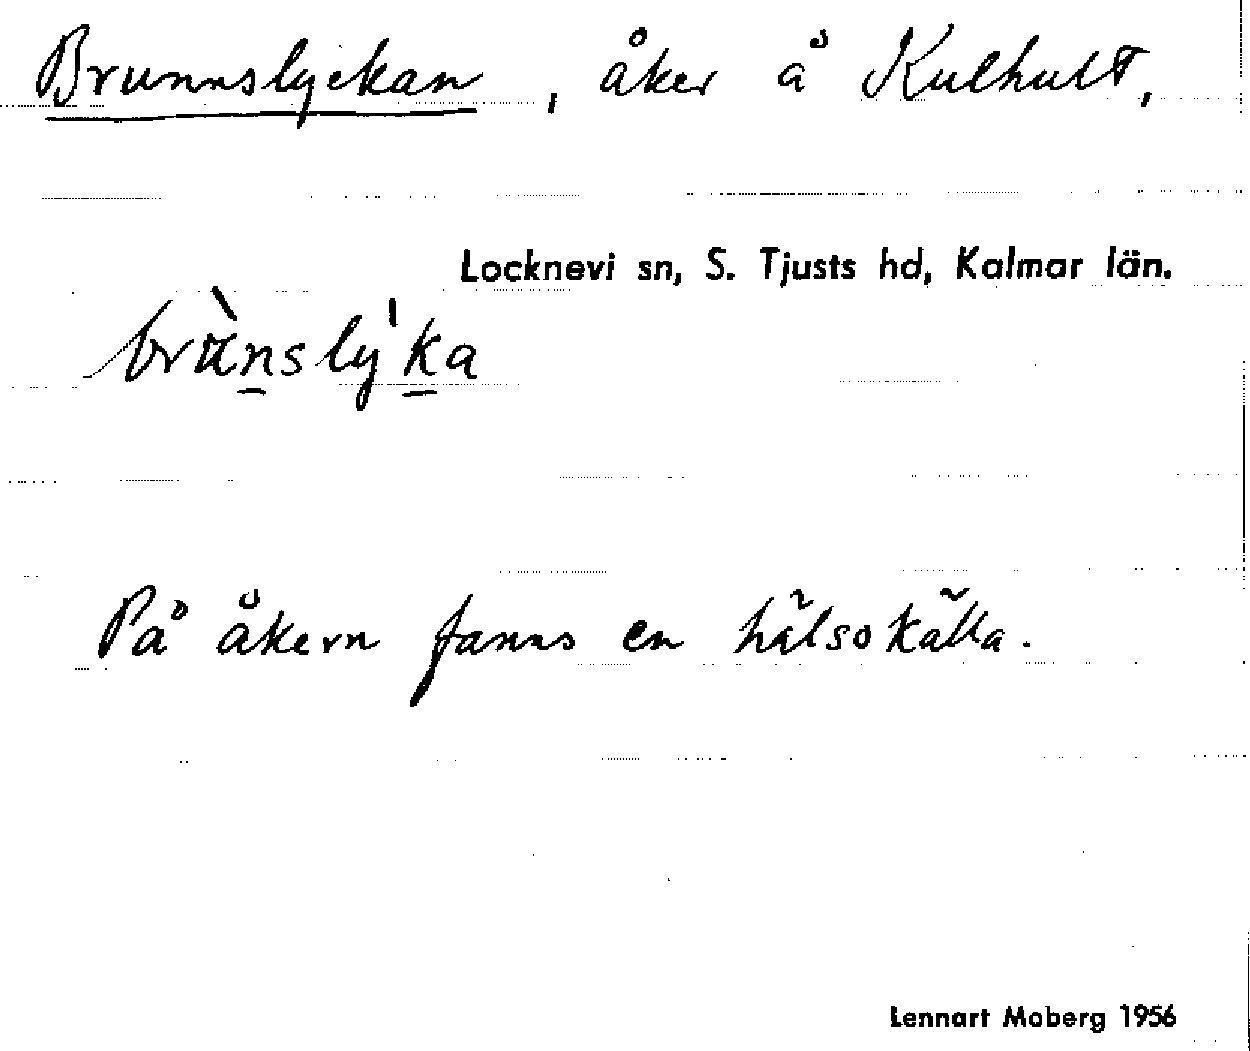 Brunnslyckan, åker å Kulhult,
Locknevi sn, S. Tjusts hd, Kalmar län.
brùnsly'ka
På åkern fanns en hälsokälla.
Lennart Moberg 1956